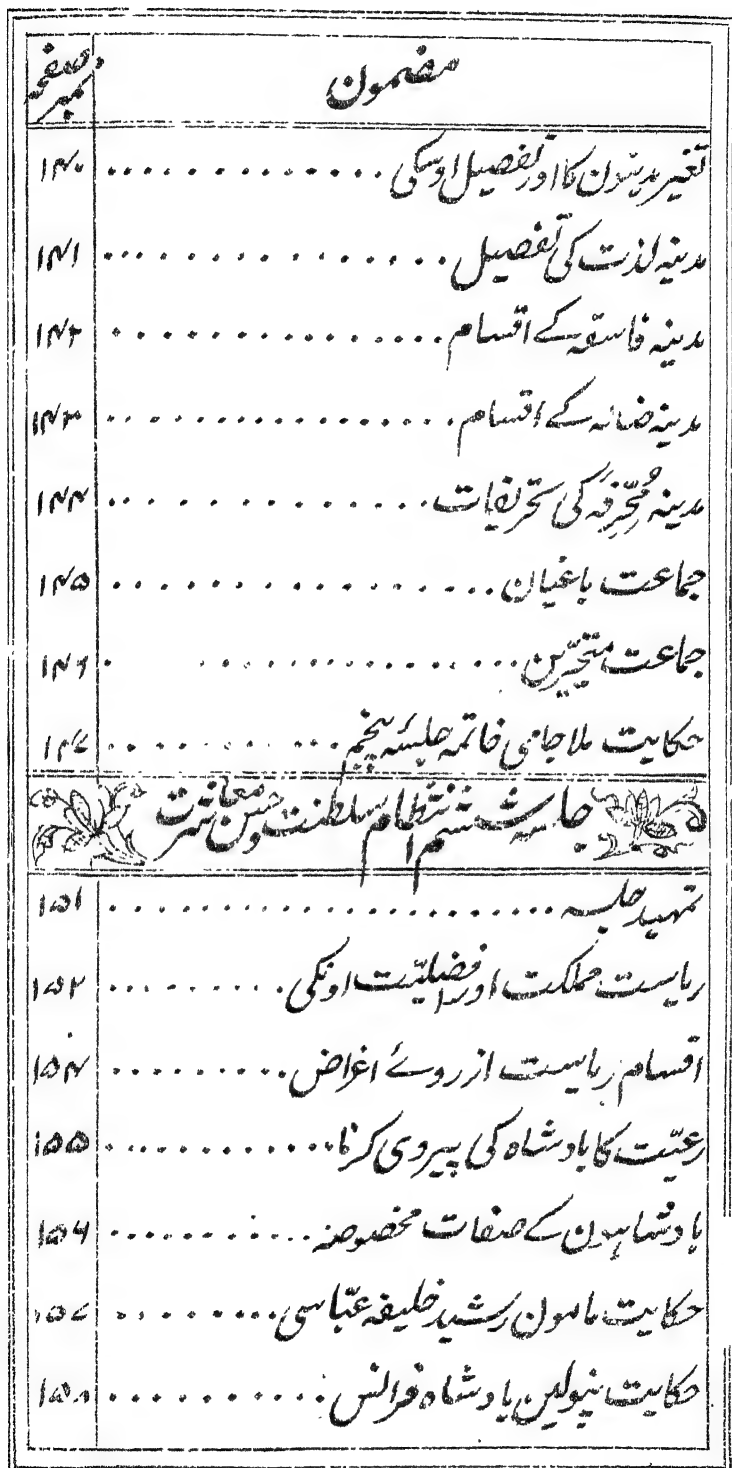 مضمون نمبر صفحہ
تغیر مدینون کا اور تفصیل اوسکی ۱۴۰
مدینہ لذت کی تفصیل ۱۴۱
مدینہ فاسقہ کے اقسام ۱۴۲
مدینہ ضالہ کے اقسام ۱۴۳
مدینہ مُحَرِّفَہ کی تحریفات ۱۴۴
جماعت باغیان ۱۴۵
جماعت متحیّرین ۱۴۶
حکایت ملا جامی خاتمہ جلسئہ پنجم ۱۴۷
جلسہ ششم انتظام سلطنت و حسن معاشرت
تمہید جلسہ ۱۵۱
ریاست مملکت اور افضلیّت اونکی ۱۵۲
اقسام ریاست از روئے اغراض ۱۵۴
رعیّت کا بادشاہ کی پیروی کرنا ۱۵۵
بادشاہون کے صفات مخصوصہ ۱۵۶
حکایت مامون رشید خلیفہ عبّاسی ۱۵۷
حکایت نپولین بادشاہ فرانس ۱۵۸